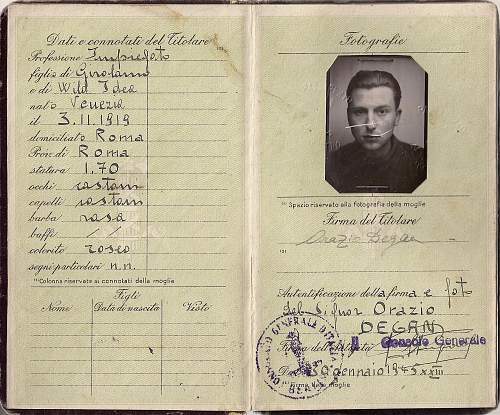 Dati e connotati del Titolare
Professione Impiegato
figlio di Girolamo
e di Wild Idea
nato Venezia
il 3.11.1919
domiciliato Roma
Prov. di Roma
statura 1.70
occhi castani
capelli castani
barba rasa
baffi //
colorito roseo
segni particolari n.n.
(1) Colonna riservata ai connotati della moglie
Figli
Nome Data di nascita Visto
Fotografie
(2) Spazio riservato alla fotografia della moglie
Firma del Titolare
Orazio Degan
(3)
Autentificazione della firma e foto
del Signor Orazio
DEGAN
Il Console Generale
Firma dell'
gennaio 1945 XXIII
(3) Firma della moglie
CONSOLATO GENERALE D'ITALIA